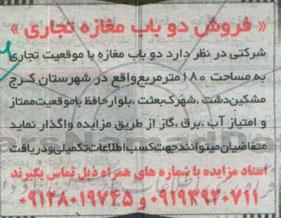 « فروش دو باب مغازه تجاری »
شرکتی در نظر دارد دو باب مغازه با موقعیت تجاری
به مساحت ۱۸۰ مترمربع واقع در شهرستان کرج
مشکین‌دشت ،شهرک‌بعثت ،بلوار‌حافظ باموقعیت‌ممتاز
و امتیاز آب ،برق ،گاز از طریق مزایده واگذار نماید
متقاضیان میتوانند جهت کسب اطلاعات تکمیلی و دریافت
اسناد مزایده با شماره های همراه ذیل تماس بگیرند
۰۹۱۹۲۹۲۰۷۱۱ و ۰۹۱۲۸۰۱۹۷۴۵